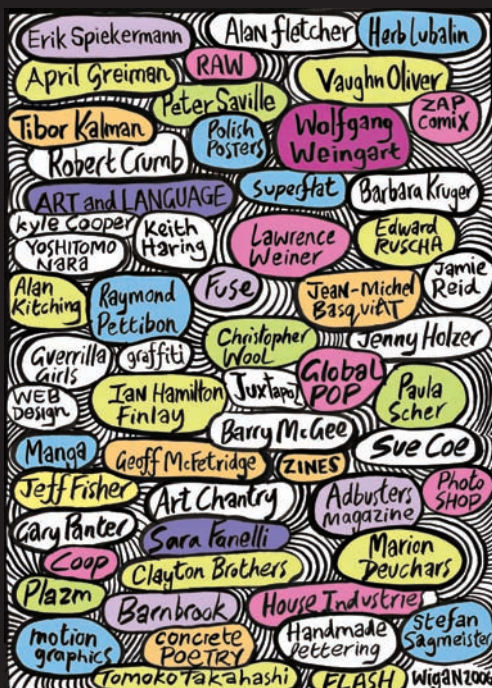 Erik Spiekermann
Alan fletcher
Herb Lubalin
April Greiman
RAW
Vaughn Oliver
Peter Saville
ZAP
Comix
Tibor Kalman
Polish
Posters
Wolfgang
Weingart
Robert Crumb
ART and LANGUAGE
Superflat
Barbara Kruger
Kyle Cooper
Keith
Haring
Lawrence
Weiner
Edward
RUSCHA
YOSHITOMO
NARA
Jamie
Reid
Alan
Kitching
Raymond
Pettibon
Fuse
Jean-Michel
BasquiAT
Christopher
Wool
Jenny Holzer
Guerrilla
Girls
graffiti
Global
POP
WEB
Design
Ian Hamilton
Finlay
Juxtapoz
Paula
Scher
Barry McGee
Sue Coe
Manga
Geoff McFetridge
ZINES
Jeff Fisher
Art Chantry
Adbusters
magazine
Photo
SHOP
Gary Panter
Sara Fanelli
Marion
Deuchars
Coop
Clayton Brothers
Plazm
Barnbrook
House Industrie
motion
graphics
concrete
POETRY
Handmade
Lettering
Stefan
Sagmeister
Tomoko Takahashi
FLASH
WigaN2006